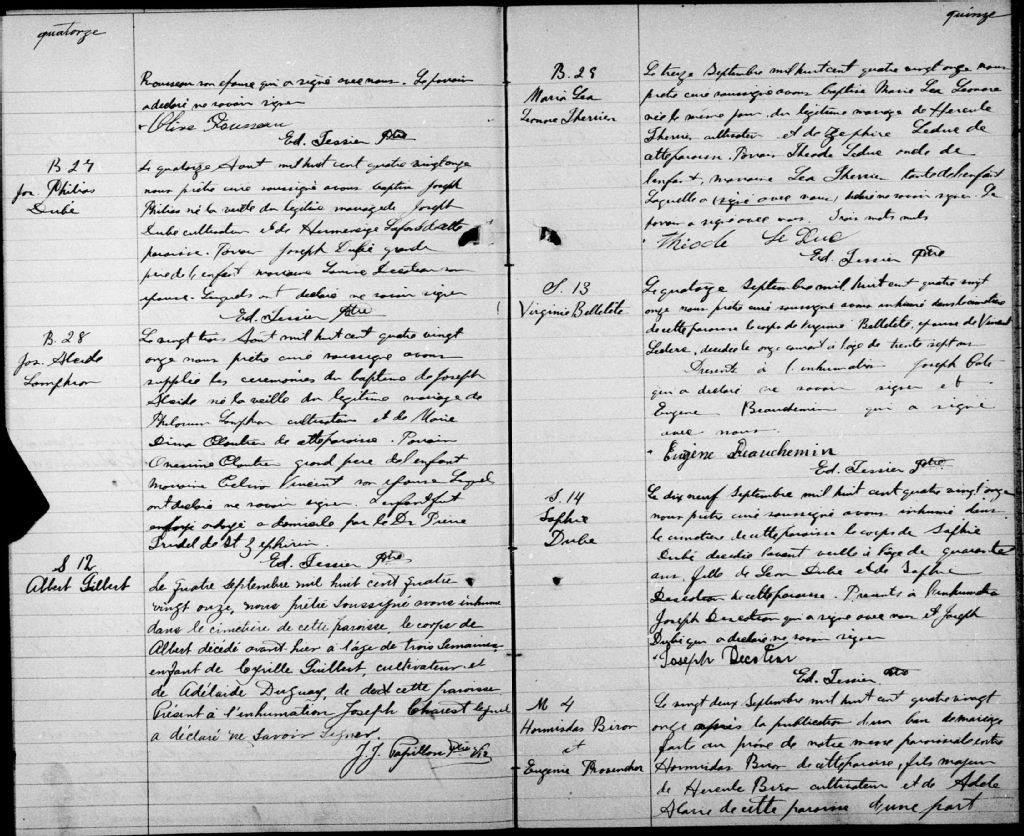 quatorze
Rousseau son épouse qui a signé avec nous. Le parrain
a declaré ne savoir signer
Olive Rousseau
Ed. Tessier Ptre
B 27
Jos. Philias
Dubé
Le quatorze Aout mil huit cent quatre vingt onze
nous prêtre curé soussigné avons baptisé Joseph
Philias né la veille du légitime mariage de Joseph
Dubé cultivateur et de Hermenise Lafond de cette
paroisse. Parrain Joseph Dubé grand
pere de l'enfant marraine Louise Decoteau son
epouse. Lesquels ont declaré ne savoir signer
Ed. Tessier Ptre
B. 28
Jos. Alcide
Lomphron
Le vingt trois Aout mil huit cent quatre vingt
onze nous prêtre curé soussigné avons
supplée les ceremonies du bapteme de Joseph
Alcide né la veille du legitime mariage de
Philorum Lomphron cultivateur et de Marie
Dina Cloutier de cette paroisse. Parrain
Onesime Cloutier grand pere de l'enfant
Marraine Celina Vincent son epouse Lesquels
ont declaré ne savoir signer. L'enfant fut
ondoyé a domicile par le Dr Pierre
Trudel de St Zephirin.
Ed. Tessier Ptre
S 12
Albert Gilbert
Le quatre septembre mil huit cent quatre
vingt onze, nous prêtre soussigné avons inhumé
dans le cimetière de cette paroisse, le corps de
Albert décédé avant hier à l'âge de trois semaines
enfant de Cyrille Guilbert, cultivateur et
de Adélaide Duguay, de cette paroisse
Présent à l'inhumation Joseph Charest lequel
a déclaré ne savoir signer.
J.J. Papillon Ptre Vic
quinze
B. 29
Maria Lea
Leonore Therrien
Le treize Septembre mil huit cent quatre vingt onze nous
prêtre curé soussigné avons baptisé Marie Lea Leonore
née le même jour du legitime mariage de Hercule
Therrien cultivateur et de Zephire Leduc de
cette paroisse. Parrain Théode Leduc oncle de
l'enfant, marraine Lea Therrien tante de l'enfant
Laquelle a (signé avec nous) declaré ne savoir signer. Le
parrain a signé avec nous. Trois mots nuls
Théode Le Duc
Ed. Tessier Ptre
S. 13
Virginie Belletête
Le quatorze Septembre mil huit cent quatre vingt
onze nous prêtre curé soussigné avons inhumé dans le cimetière
de cette paroisse le corps de Virginie Belletête, epouse de Vincent
Leclerc, decedée le onze courant à l'age de trente sept ans
Presents à l'inhumation Joseph Coté
qui a declaré ne savoir signer et
Eugene Beauchemin qui a signé
avec nous.
Eugène Beauchemin
Ed. Tessier Ptre
S. 14
Sophie
Dubé
Le dix neuf Septembre mil huit cent quatre vingt onze
nous prêtre curé soussigné avons inhumé dans
le cimetière de cette paroisse le corps de Sophie
Dubé decedée l'avant veille à l'age de quarante
ans, fille de Leon Dubé et de Sophie
Decoteau de cette paroisse. Presents à l'inhumation
Joseph Decoteau qui a signé avec nous et Joseph
Dubé qui a declaré ne savoir signer
Joseph Decoteau
Ed. Tessier Ptre
M 4
Hormisdas Biron
et
Eugenie Provencher
Le vingt deux Septembre mil huit cent quatre vingt
onze après la publication d'un ban de mariage
faite au prône de notre messe paroissiale entre
Hormisdas Biron de cette paroisse, fils majeur
de Hercule Biron cultivateur et de Adele
Alarie de cette paroisse d'une part